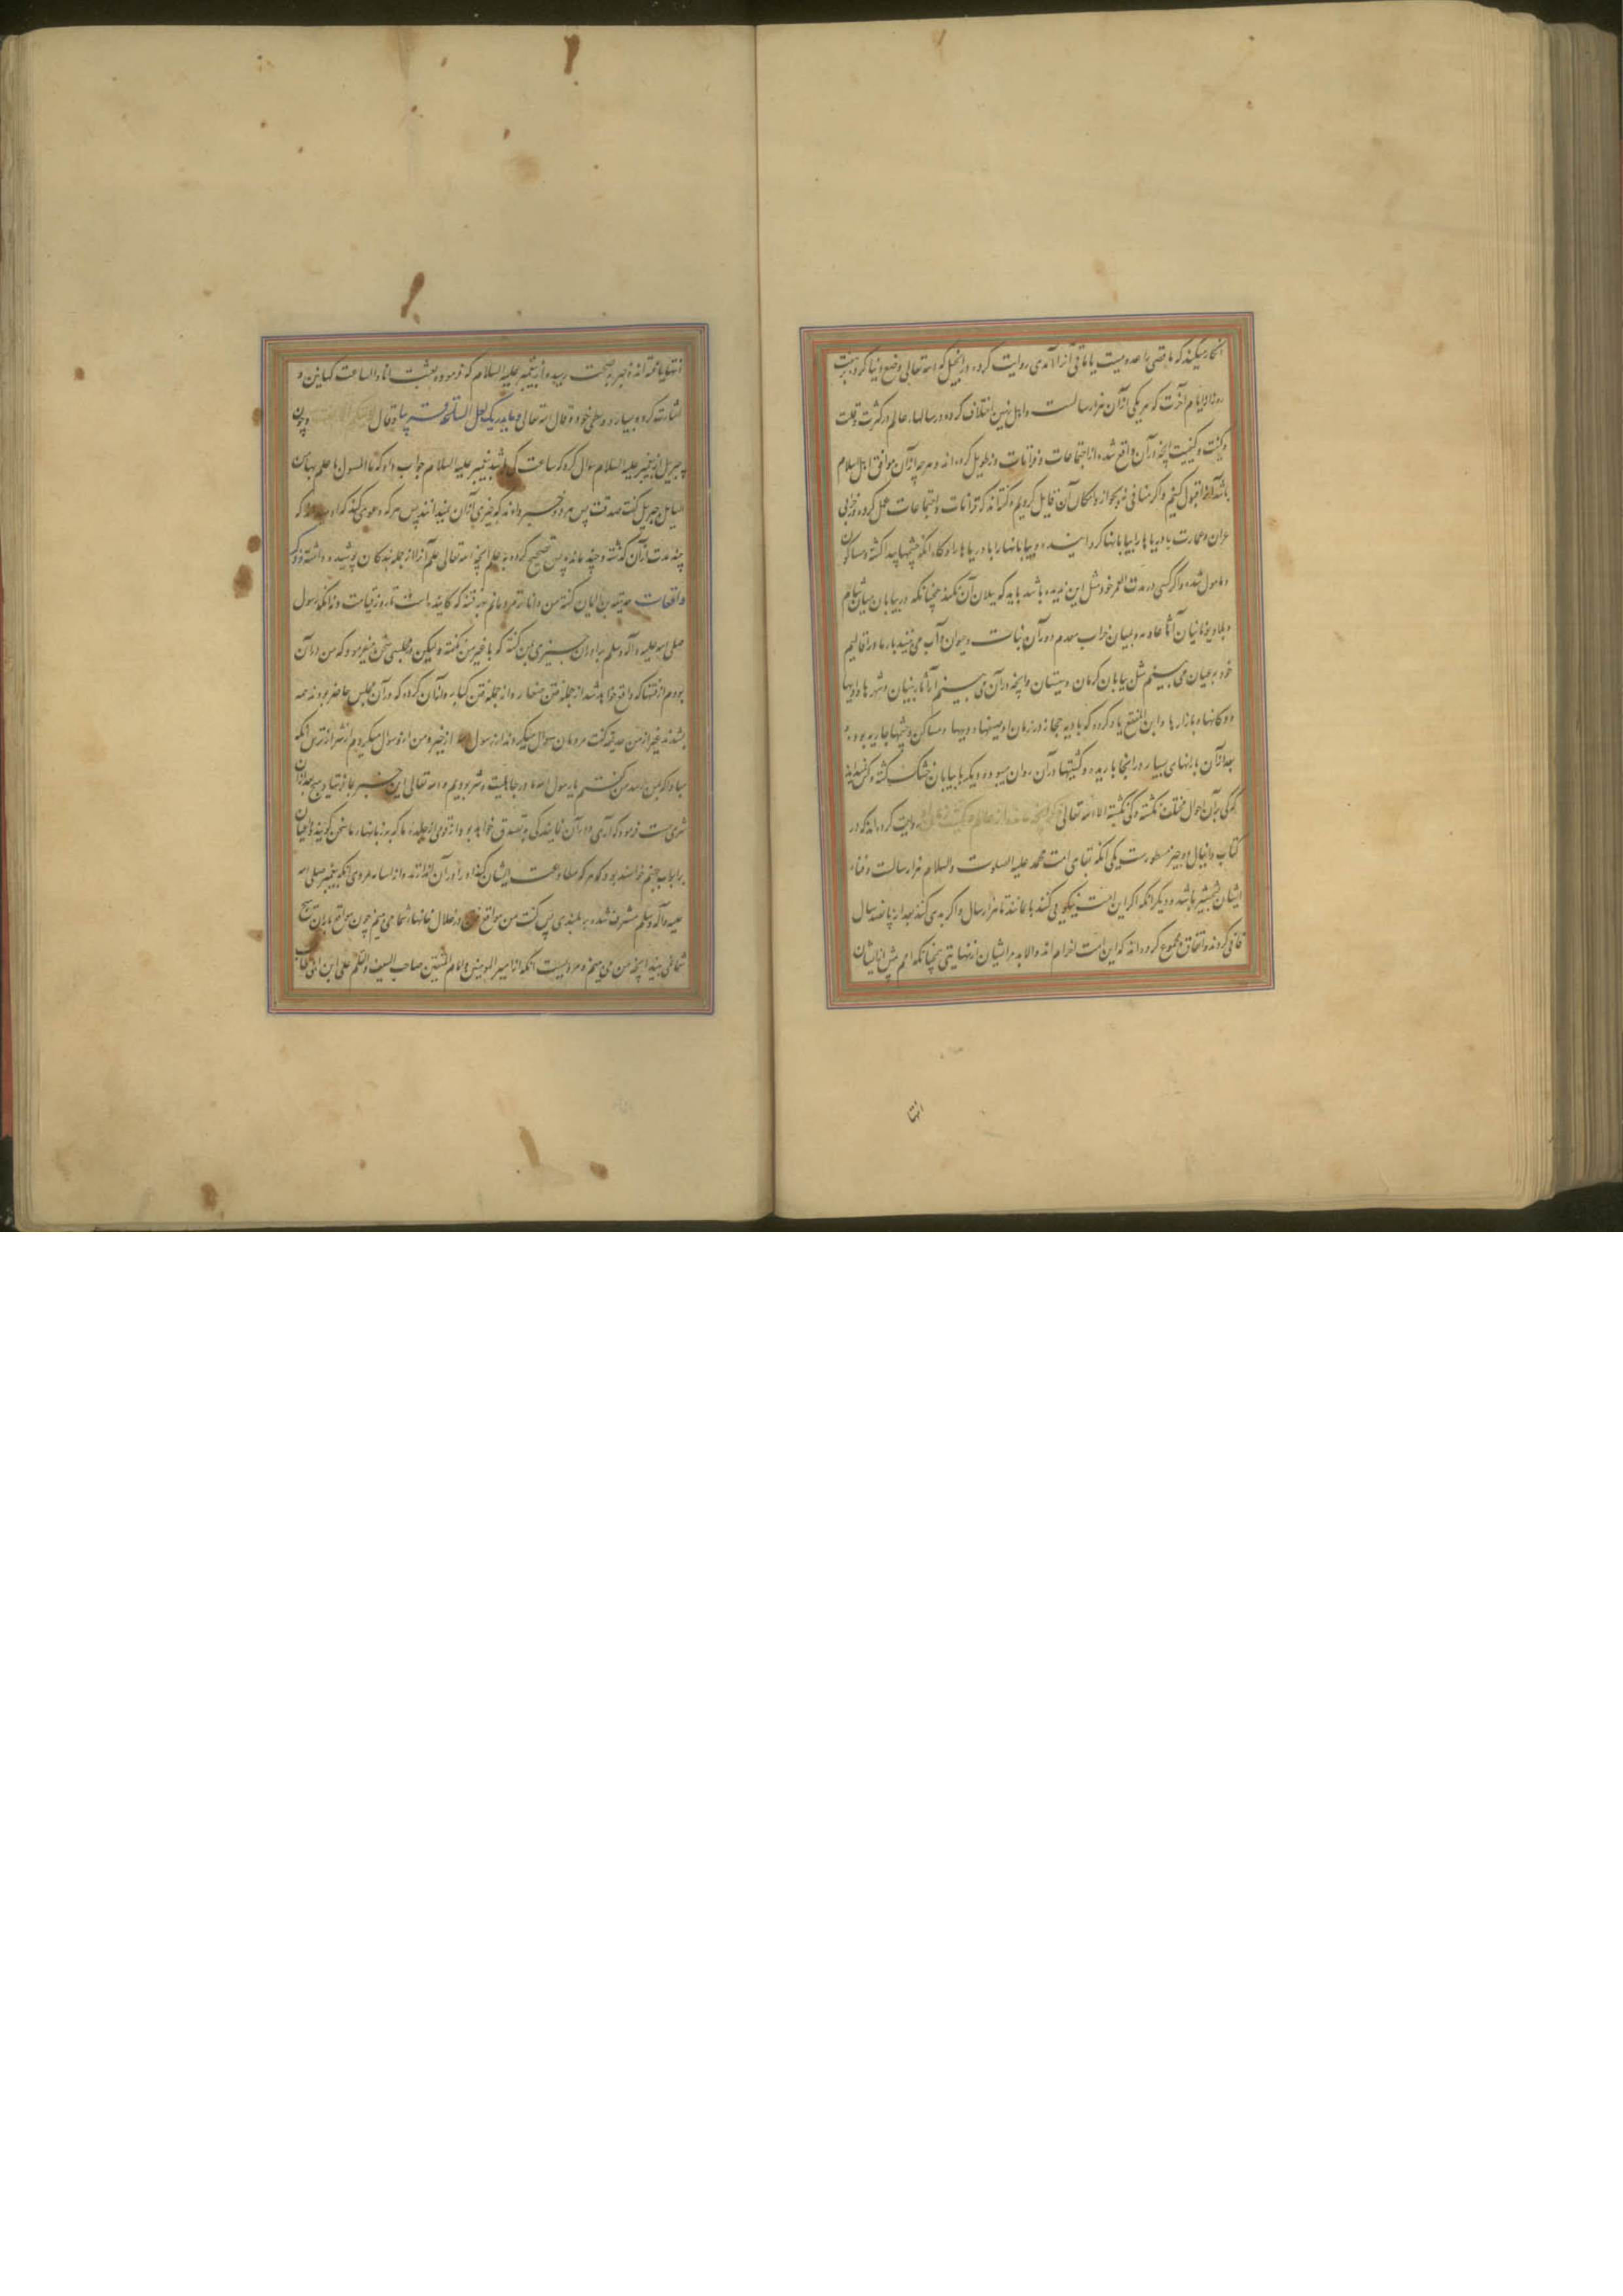 انکار میکند که ماضی را عددیست یا باقی آنرا آمدی روایت کرده در انجیل که الله تعالی وضع دنیا کرد هفت
روز از ایام آخرت که هر یکی از آن هزار سالست و اهل زمین اختلاف کرده در سالهاء عالم در کثرت و قلت
و کمیت و کیفیت آنچه در آن واقع شده از اجتماعات و قرانات و تطویل کرده اند و هر چه از آن موافق اهل اسلام
باشد آنرا قبول کنیم و اگر منافی نبود بجواز و امکان آن قایل گردیم و گفته اند که قرانات و اجتماعات عمل کرده در خرابی
عمران و عمارت تا دریاها را بیابانها گرداننده و بیابانها را با دریاها و گاه آنکه چشمها پیدا گشته و مساکن
و مامول شده و اگر کسی در مدت العمر خود مثل این ندیده باشد باید که بدان آن نکند همچنانکه در بیابان میان شام
و بلاد یونانیان آثا عاد و بنیان خراب معدم در آن نبات و حیوان و آب می بینید بار ما در اقالیم
خود بعیان می بینیم مثل بیابان کرمان و سیستان و آنچه در آن می بینیم از آثار بنیان و شهرها و دیها
و دکانها و بازارها و ابن المقفع یاد کرده که بادیه حجاز در زمان اول میبنها و دیها و مساکن و چشمها جاریه بوده
بعد از آن بارانهای بسیار در آنجا باریده و کشتیها در آن روان میبود و دیگر با بیابان خشک گشته و کس نداند
که کی بر آن احوال مختلف گشته و کی نگشته الا الله تعالی ذکر آنچه مانده از عالم و کمیت زمان او روایت کرده اند که در
کتاب دانیال دو چیز مسطورست یکی آنکه بقای امت محمد علیه الصلوت و السلام هزار سالست و فناء
ایشان بشمشیر باشد و دیگر آنکه اگر این امت نیکویی کنند باقی مانند تا هزار سال و اگر بدی کنند بعد از پانصد سال
فانی گردند و اتفاق و مجموع کرده اند که این امت آخر امم اند و لا بد مر ایشان را نهایتی همچنانکه امم پیش از ایشان
انتها
انتها یافته اند و خبر بصحت رسیده از پیغمبر علیه السلام که فرموده بعثت انا و الساعت کهاتین و
اشارت کرده بسبابه و وسطی خود و قال الله تعالی و ما یدریک لعل الساعة قریبا و قال و چون
جبریل از پیغمبر علیه السلام سوال کرد که ساعت کی باشد پیغمبر علیه السلام جواب داد که ما المسول با علم بها من
السایل جبریل گفت صدقت پس هر دو خبر دادند که چیزی از آن نمیدانند پس هر که دعوی کند که او میداند که
چه مدت از آن گذشته و چند مانده پس تصحیح کرده به علم آنچه الله تعالی علم آنرا از جمله بندگان پوشیده داشته ذکر
واقعات حذیفه بن الیمان گفته من داناترم مردمانم بهر فتنه که کاینده است تا روز قیامت و نه آنکه رسول
صلی الله علیه و آله و سلم برا در آن چیزی بمن گفته که با غیر من نگفته و لیکن در مجلسی سخن میفرمود که من در آن
بودم از فتنها که واقع خواهد شد از جمله فتن صغار و از جمله فتن کبار و آنان کرده که در آن مجلس حاضر بودند همه
بشدند غیر از من حذیفه گفت مردمان سوال میکردند از رسول الله از خیر و من از او سوال میکردم از شر از ترس آنکه
مبادا که بمن رسد من گفتم یا رسول الله ما در جاهلیت و شر بودیم و الله تعالی این خیر بما فرستاد هیچ بعد از آن
شری هست فرمود که آری در آن نمایندگی و تصدق خواهد بود از قومی از جلده ما که بر زبانهاء ما سخن گویند داعیان
بر ابواب جهنم خواهند بود که هر که مطاوعت ایشان کند او را در آن اندازند و از اسامه مرویست که پیغمبر صلی الله
علیه و آله و سلم مشرف شده بر بلندی پس گفت من مواقع فتن در خلال خانهاء شما می بینم چون مواقع باران هیچ
شما می بینید آنچه من می بینم و مرویست آنکه از امیر المومنین و امام المتقین صاحب السیف و القلم علی ابن ابی طالب